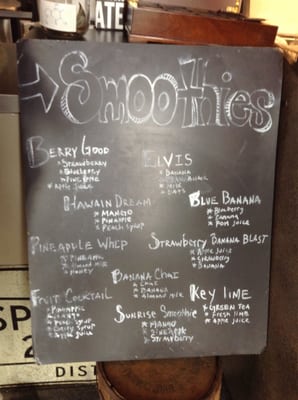 ATE
Smoothies
BERRY GOOD
* STRAWBERRY
* BLUEBERRY
* PINEAPPLE
* APPLE JUICE
ELVIS
* BANANA
* MILK
* OATS
HAWAIIN DREAM
* MANGO
* PINEAPPLE
* PEACH SYRUP
BLUE BANANA
* BLUEBERRY
* BANANA
PINEAPPLE WHIP
* PINEAPPLE
* Almond milk
* HONEY
STRAWBERRY BANANA BLAST
* APPLE JUICE
* STRAWBERRY
* BANANA
BANANA CHAI
* CHAI
* BANANA
* Almond milk
FRUIT COCKTAIL
* PINEAPPLE
* MANGO
* PEACH SYRUP
* CHERRY SYRUP
* APPLE JUICE
KEY LIME
* GREEN TEA
* FRESH LIME
* APPLE JUICE
SUNRISE SMOOTHIE
* MANGO
* PINEAPPLE
* STRAWBERRY
SP
2
DIST